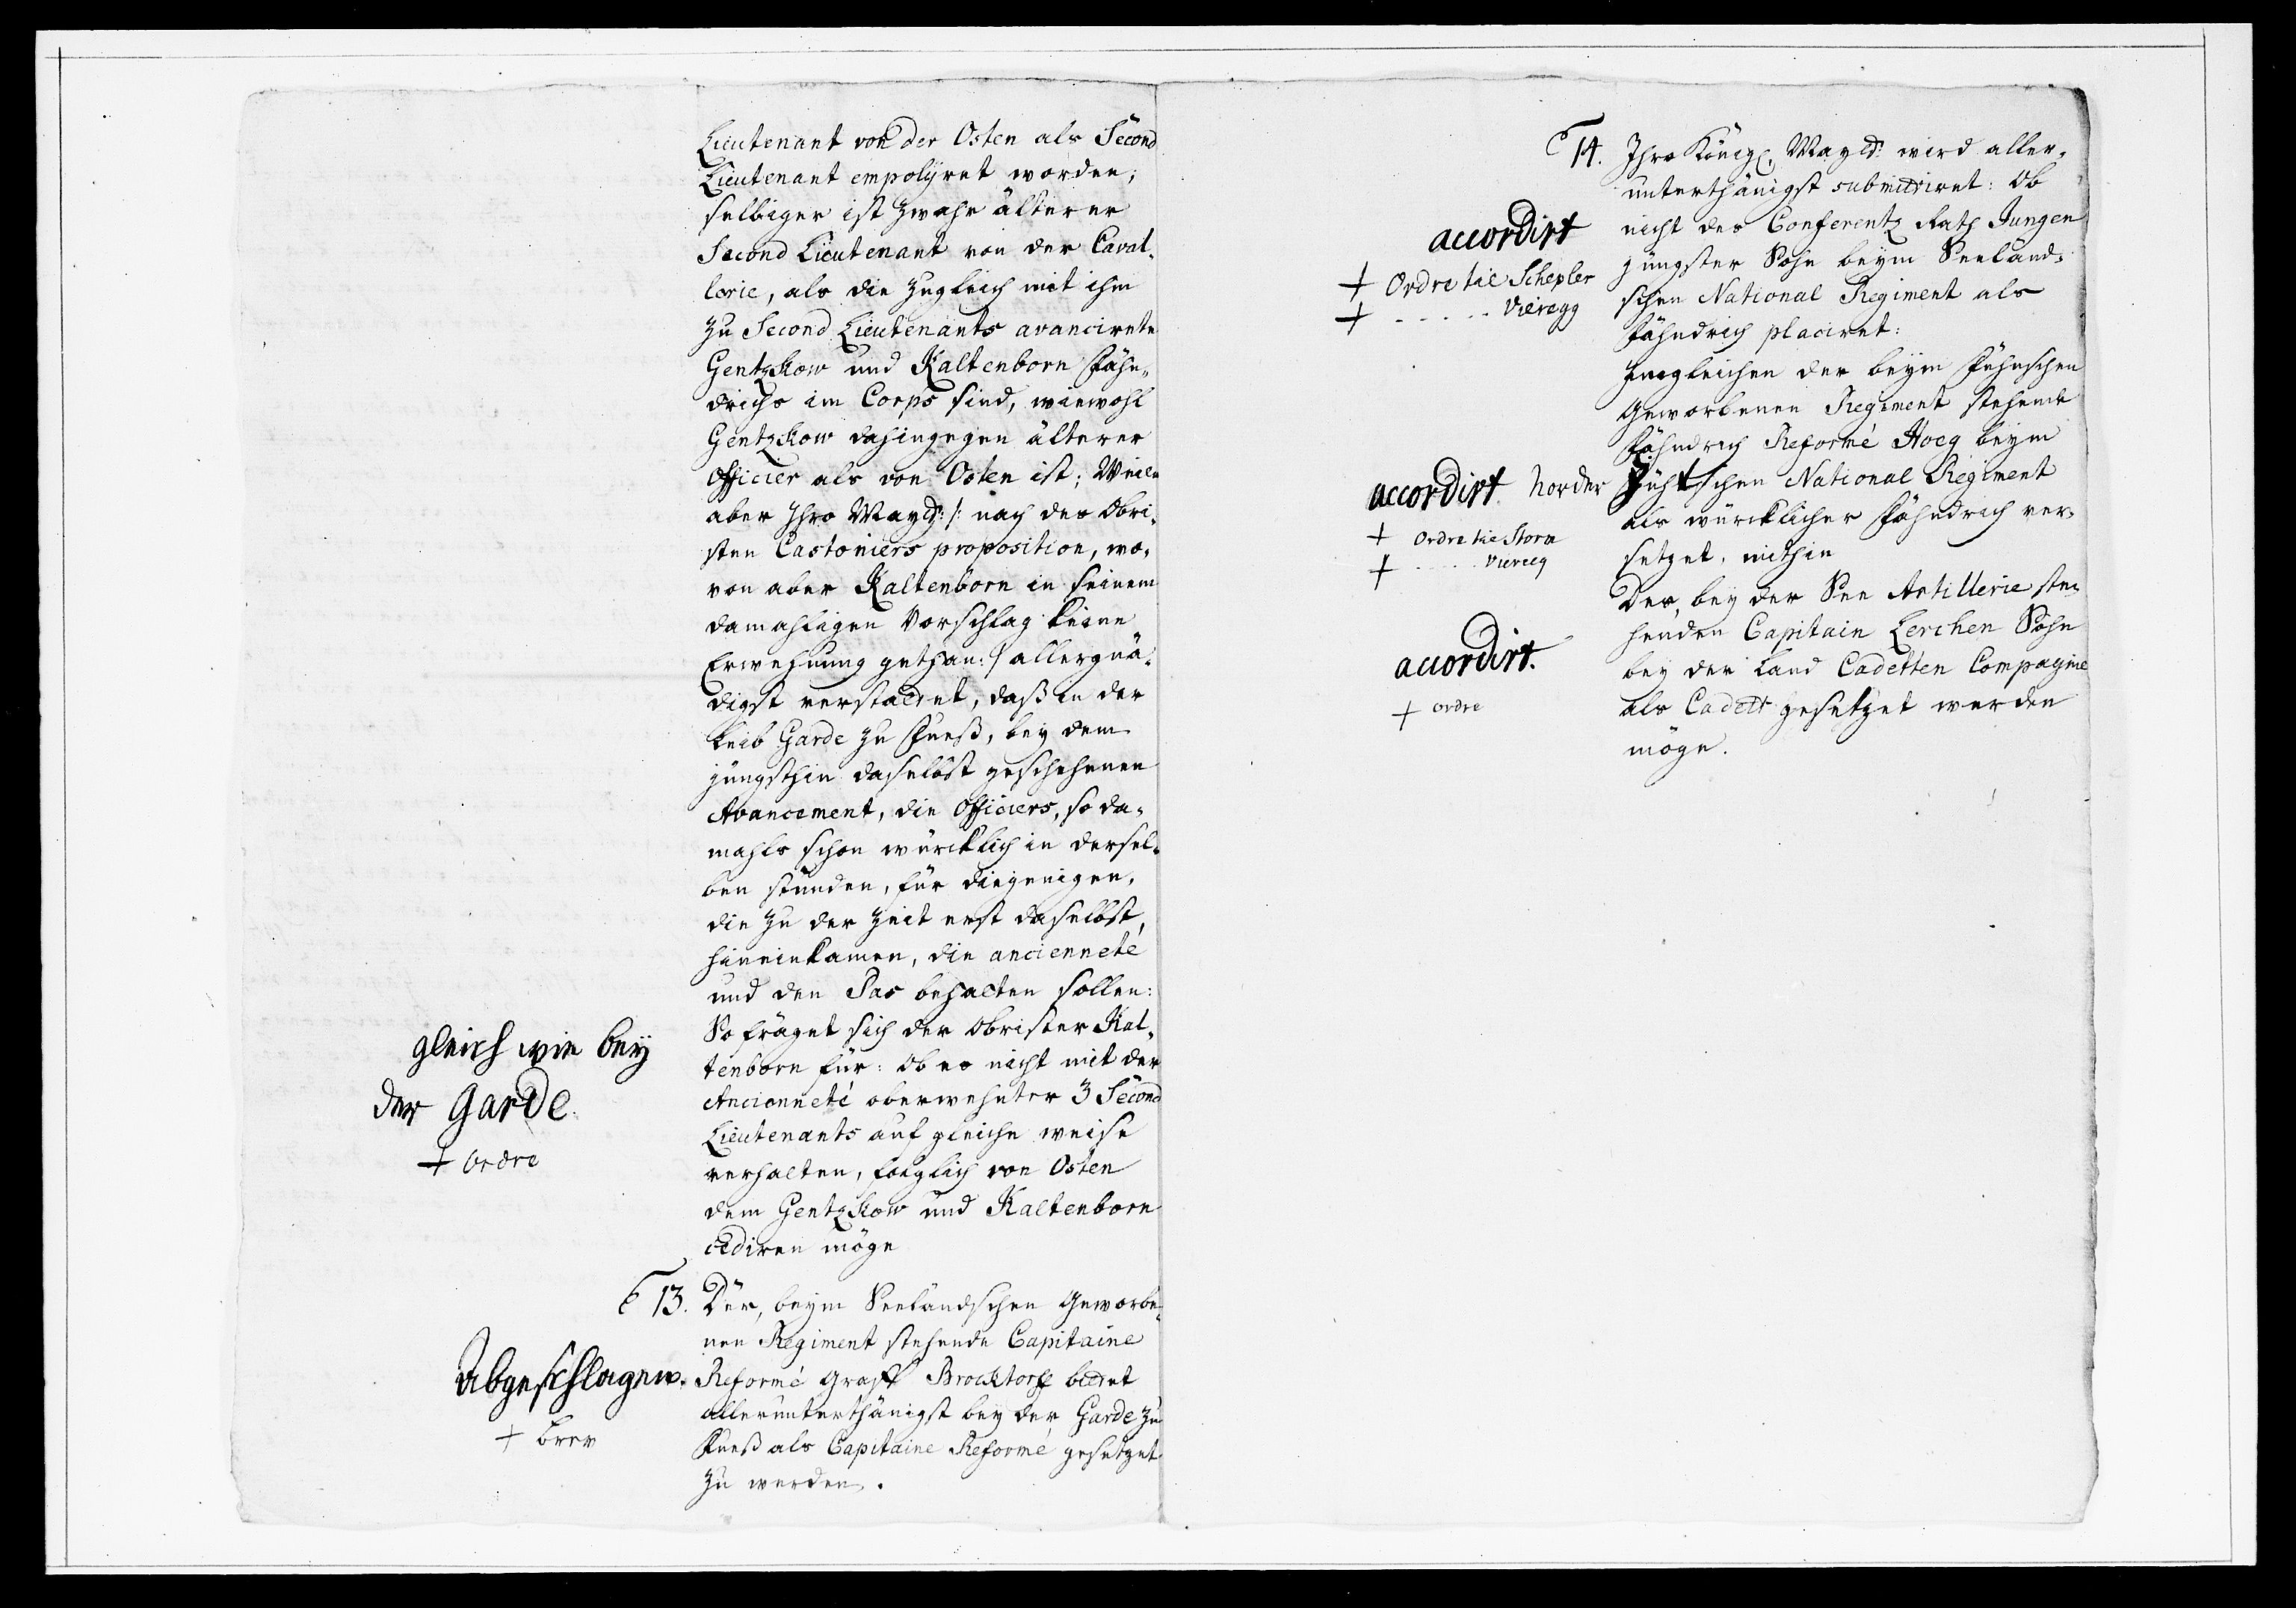 Lieutenant von der Osten als Second
Lieutenant employret worden;
selbiger ist zwahr älterer
Second Lieutenant von der Caval-
lerie, als die zugleich mit ihm
zu Second Lieutenants avancirete
Gentzkow und Kaltenborn Fähn-
drichs im Corps sind, wiewohl
Gentzkow dahingegen älterer
Officier als von Osten ist; Weiln
aber Ihro Mayes: /: nach des Obri-
sten Castoniers proposition, wo-
von aber Kaltenborn in seinem
damahligen Vorschlag keine
Erwehnung gethan: / allergnä-
digst verstattet, daß in der
Leib Garde zu Fueß, bey dem
jüngsthin daselbst geschehenen
Avancement, die Officiers, so da-
mahls schon würcklich in dersel-
ben stunden, für diejenigen,
die zu der Zeit erst daselbst
hineinkamen, die ancienneté
und den Pas behalten sollen:
So fräget sich der Obrister Kal-
tenborn für: Ob es nicht mit der
Ancienneté oberwehnter 3 Second
Lieutenants auf gleiche weise
verhalten, folglich von Osten
dem Gentzkow und Kaltenborn
cediren möge
gleich wie bey
der Garde.
+ Ordre
13. Der, beym Seelandschen Geworbe-
nen Regiment stehende Capitaine
Reformé Graff Brocktorff bittet
allerunterthänigst bey der Garde zu
Fueß als Capitaine Reformé gesetzet
zu werden.
Abgeschlagen.
+ brev
14. Ihro Königl. Mayes: wird aller-
unterthänigst submittiret: Ob
nicht des Conferentz Rath Jungen
jüngster Sohn beym Seeland-
schen National Regiment als
Fähndrich placiret:
accordirt
+ Ordre til Schepler
+ - - - - - Vieregg
Imgleichen der beym Fühnschen
Geworbenen Regiment stehende
Fähndrich Reformé Hoeg beym
Norder Jühtschen National Regiment
als würcklicher Fähndrich ver-
setzet, mithin
accordirt
+ Ordre til Storm
+ - - - - - Vieregg
Des, bey der See Artillerie ste-
henden Capitain Lerchen Sohn
bey der Land Cadetten Compagnie
als Cadett gesetzet werden
möge.
accordirt.
+ ordre